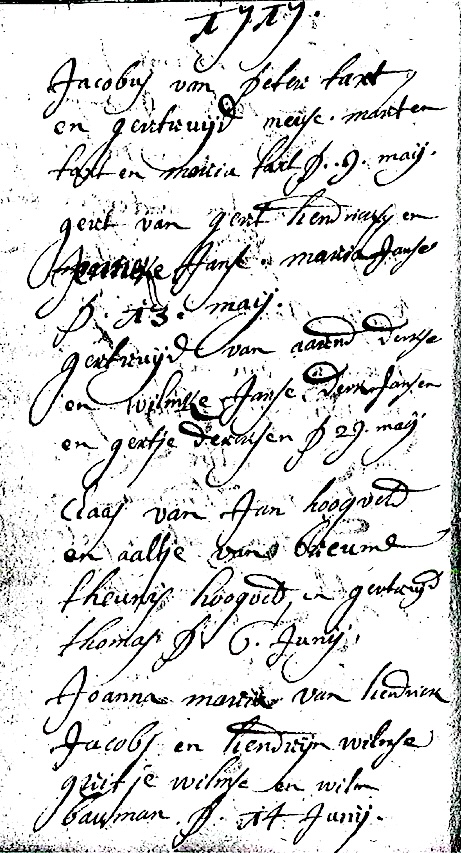 1717.
Jacobus van Peter tart
en gertruijd meuse. marten
tart en maria tart p. 9. maij.
gert van gert hendricks en
Janse. maria Janse
p. 13. maij.
gertruijd van aarend derckse
en wilmke Janse, derck Jansen
en gertje dercksen p 29. maij
Claas van Jan hoogveld
en aaltje van breume
theunis hoogveld, en gertruijd
thomas p. 6. Junij.
Joanna maria van hendrick
Jacobs en hendrijn wilmse
guitje wilmse en wilm
bauman. p. 14 Junij.